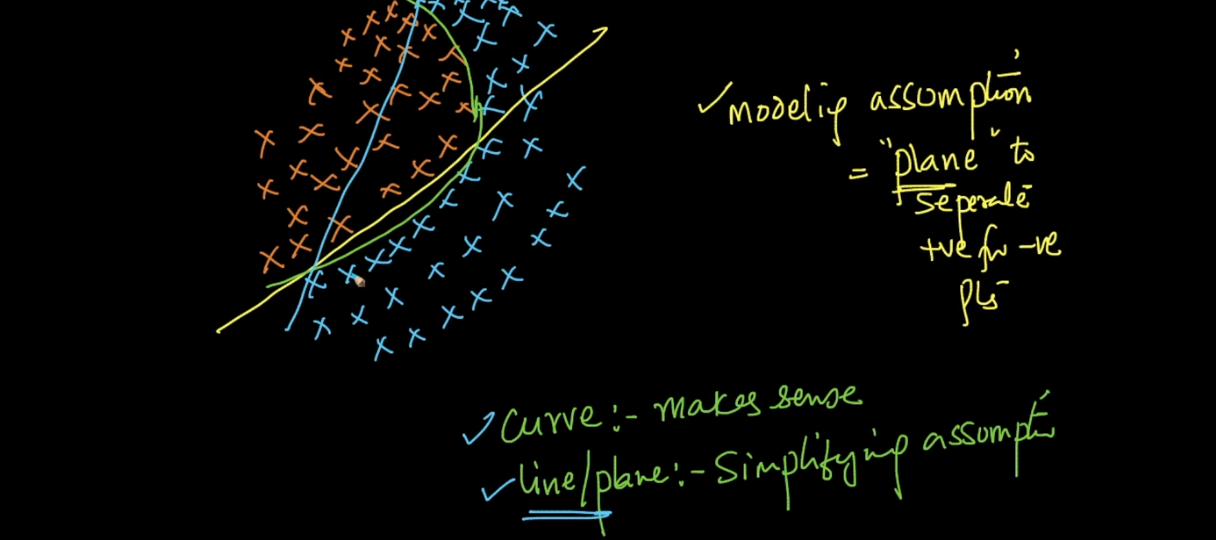 ✓modelig assumption
= "plane" to
seperate
+ve fw -ve
pts
✓ curve:- makes sense
✓ line/plane:- Simplifying assumptn